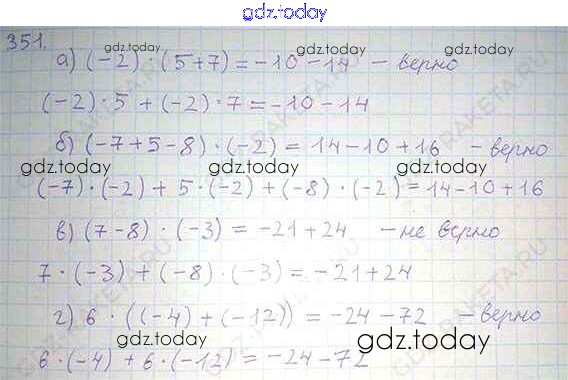 gdz.today
351.
а) (-2) · (5+7) = -10 - 14 - верно
(-2) · 5 + (-2) · 7 = -10 - 14
б) (-7+5-8) · (-2) = 14-10+16 - верно
(-7) · (-2) + 5 · (-2) + (-8) · (-2) = 14-10+16
в) (7-8) · (-3) = -21+24 - не верно
7 · (-3) + (-8) · (-3) = -21+24
г) 6 · ((-4) + (-12)) = -24 - 72 - верно
6 · (-4) + 6 · (-12) = -24 - 72
gdz.today
gdz.today
gdz.today
gdz.today
gdz.today
gdz.today
gdz.today
gdz.today
gdz.today
gdz.today
gdz.today
gdz.today